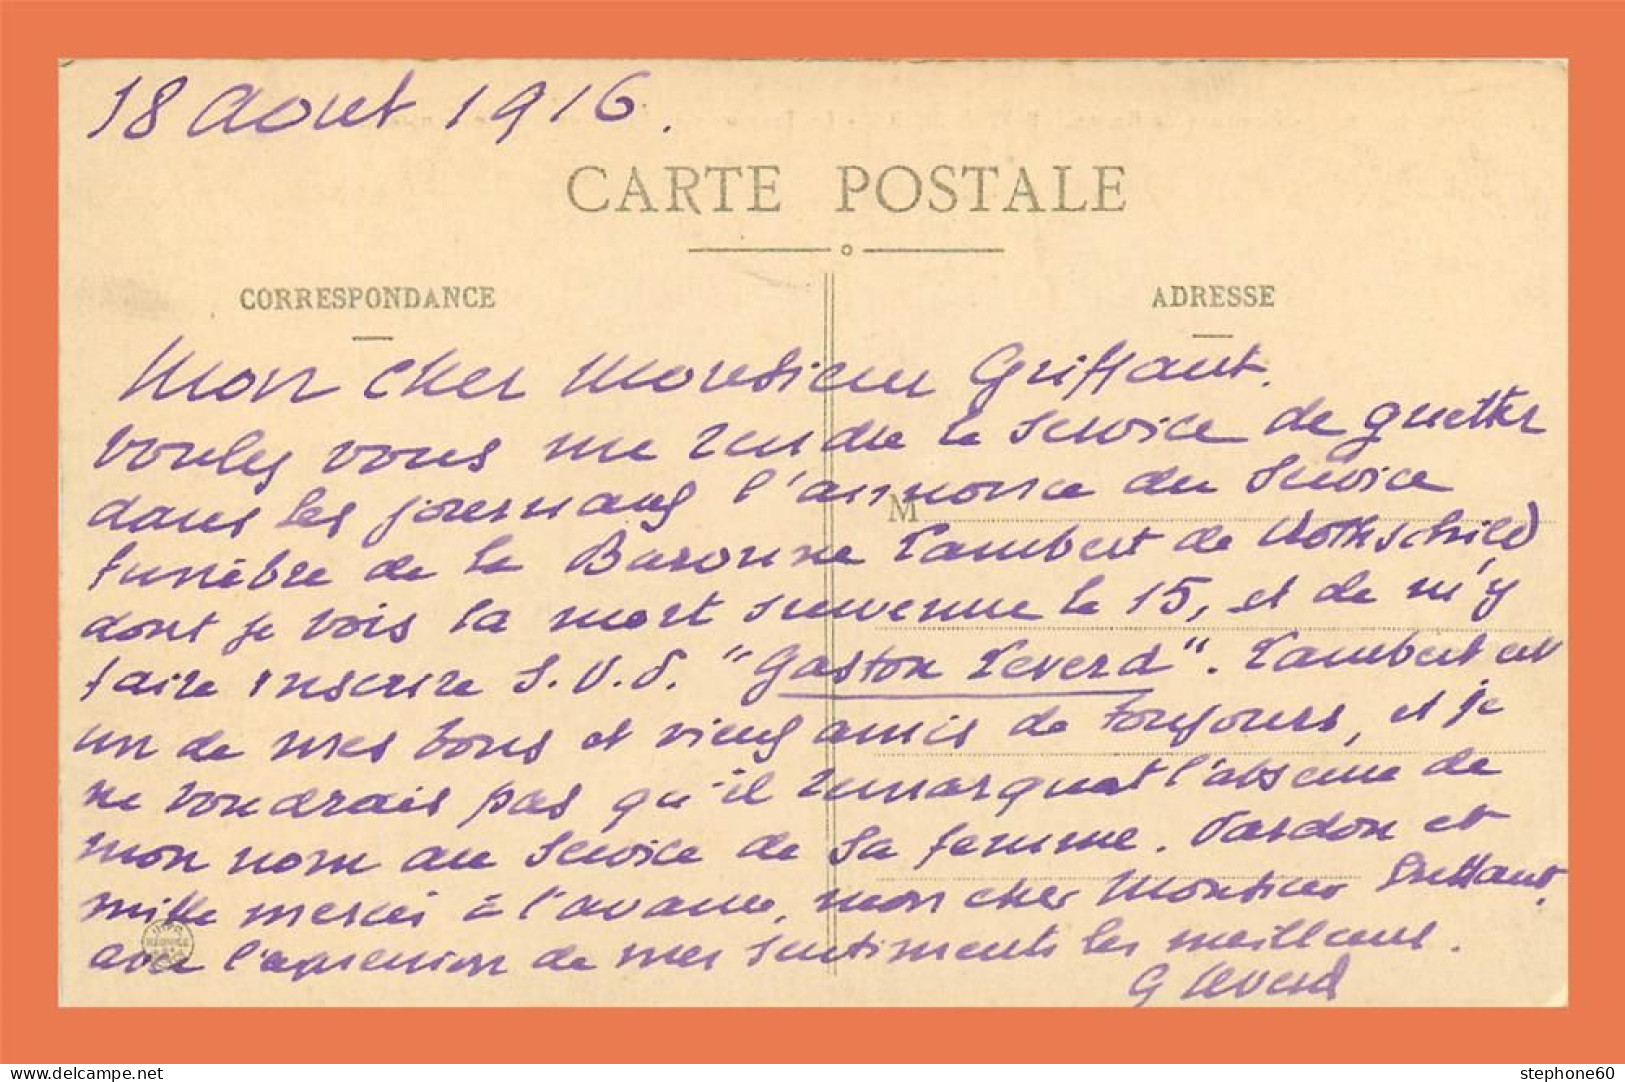 18 Aout 1916.
CARTE POSTALE
CORRESPONDANCE
ADRESSE
Mon cher Monsieur Griffaut.
Voulez vous me rendre le service de guetter
dans les journaux l'annonce du service
M
funèbre de la Baronne Lambert de Rothschild
dont je vois la mort survenue le 15, et de m'y
faire inscrire S.V.P. "Gaston Leverd". Lambert est
un de mes bons et vieux amis de toujours, et je
ne voudrais pas qu'il remarquat l'absence de
mon nom au service de sa femme. Pardon et
mille mercis à l'avance, mon cher Monsieur Griffaut,
avec l'expression de mes sentiments les meilleurs.
G Leverd
stephone60
https://www.delcampe.net